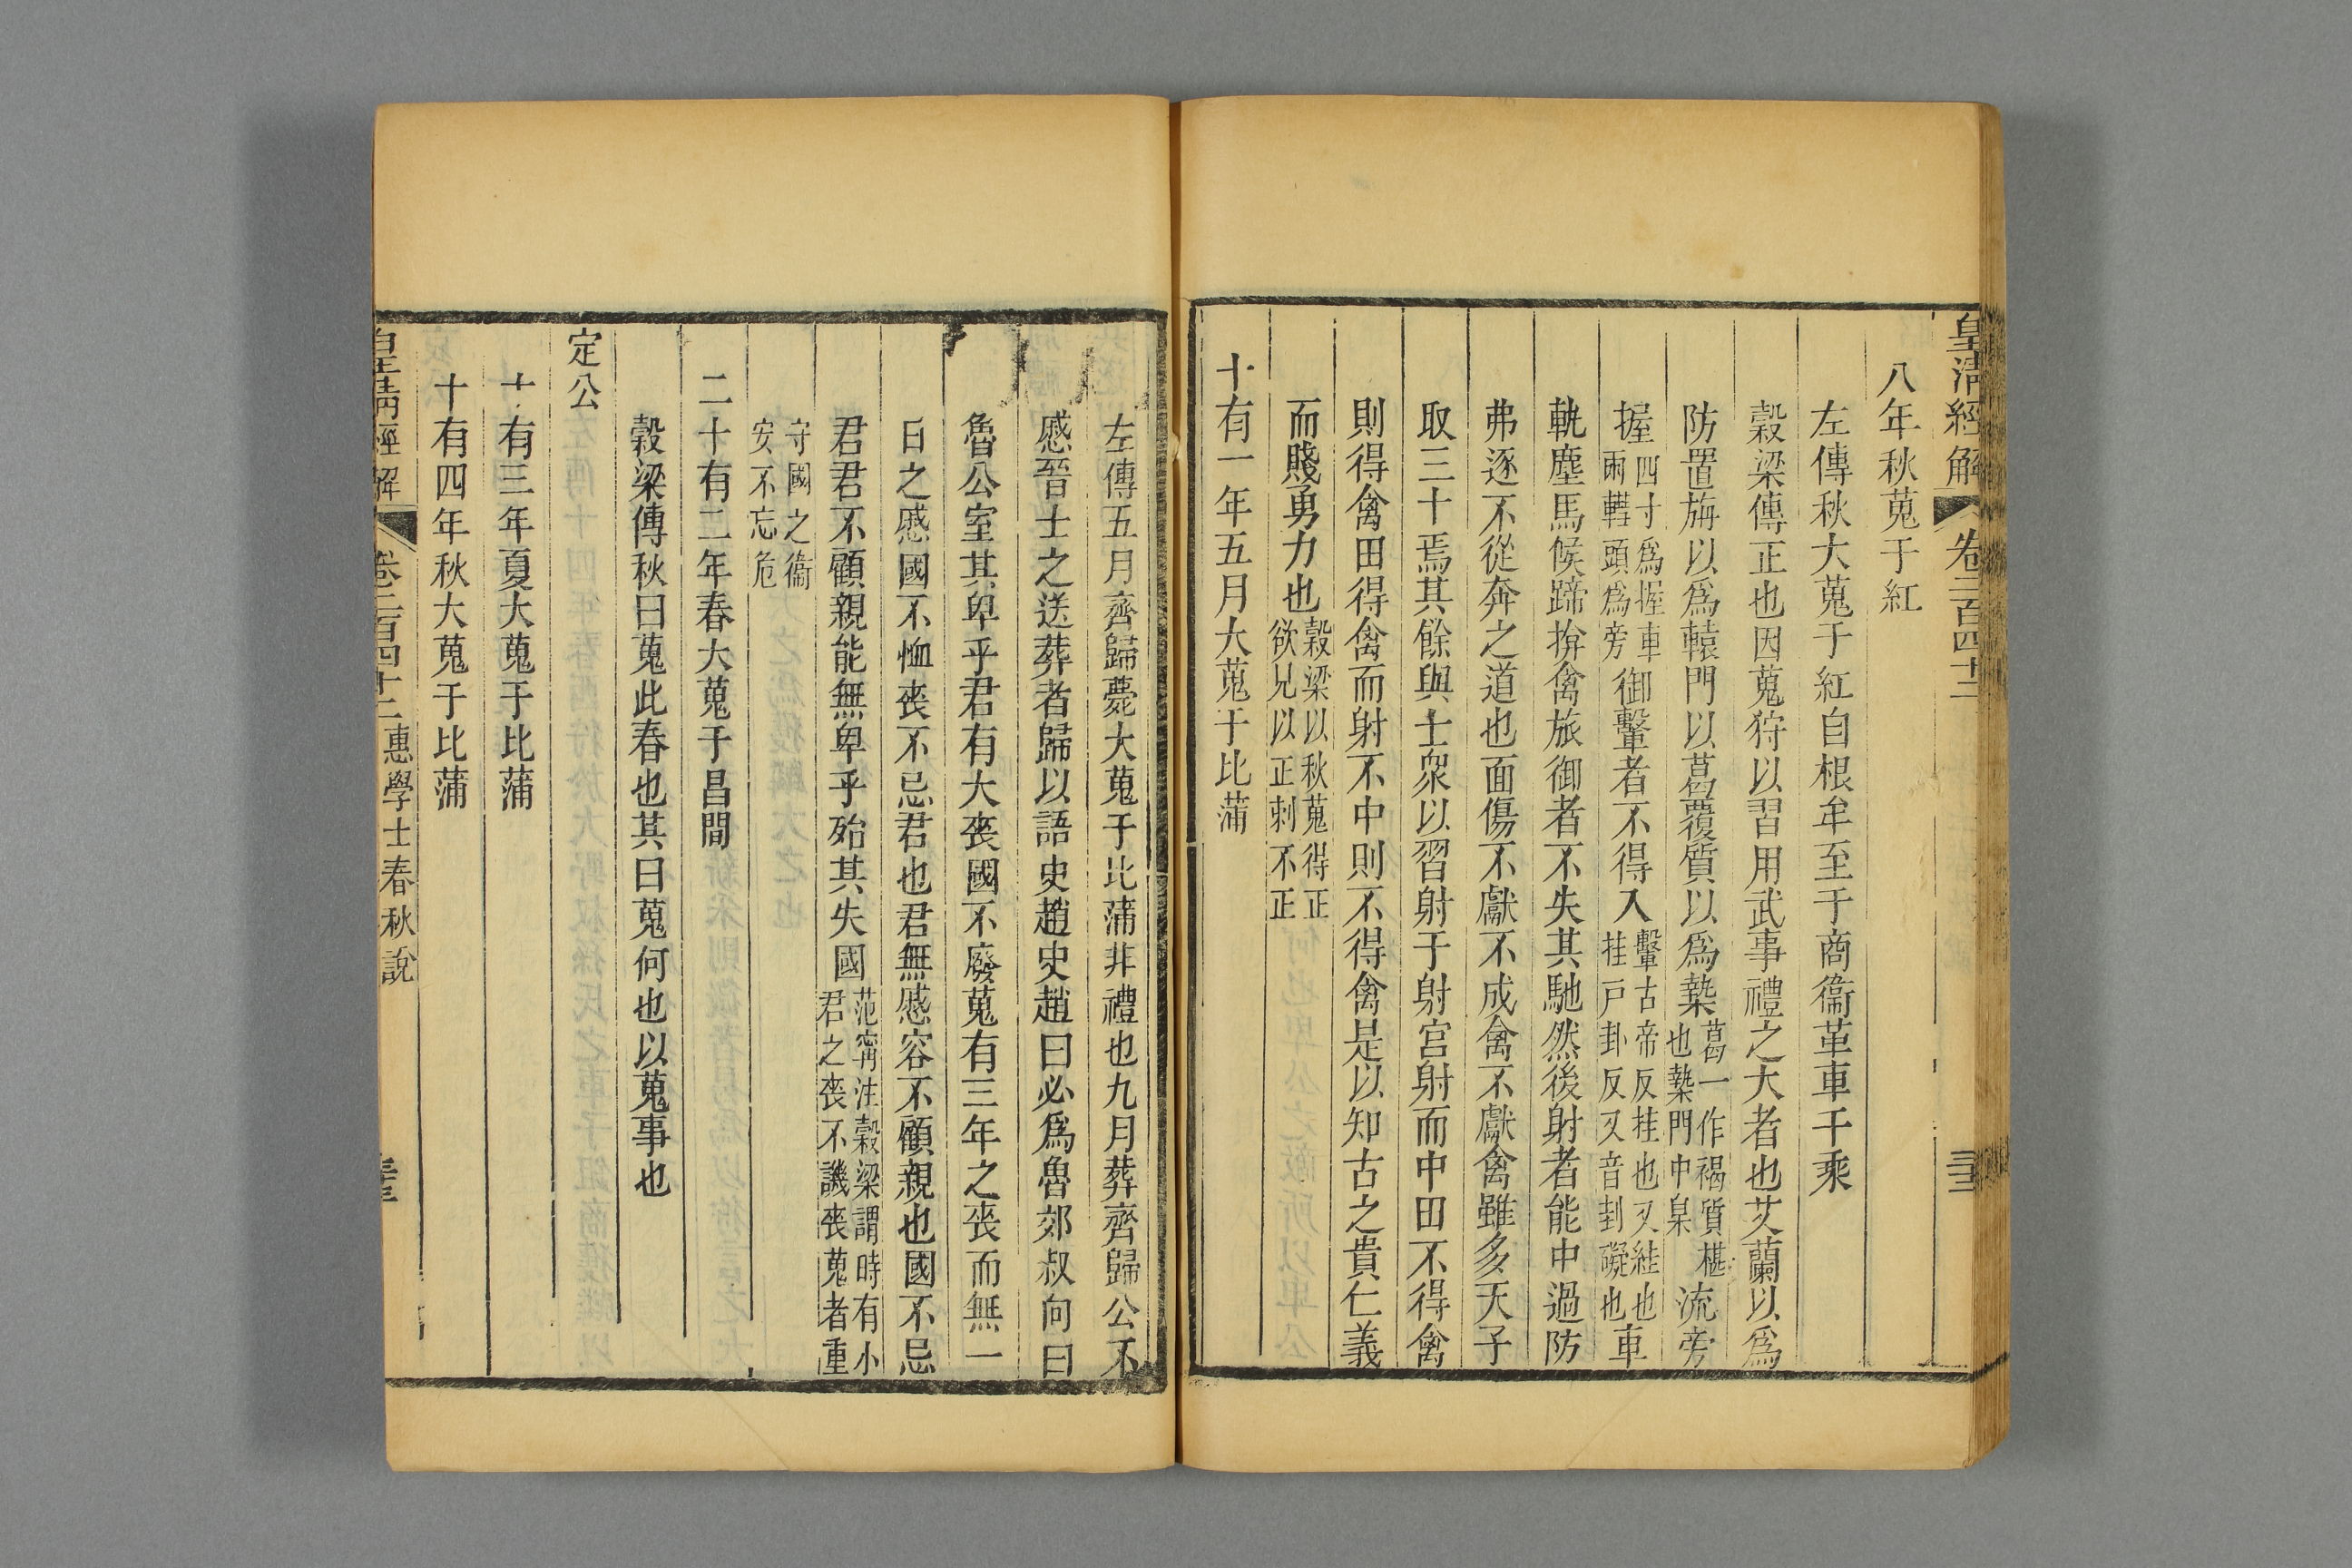 皇清經解 卷二百四十二
八年秋蒐于紅
左傳秋大蒐于紅自根牟至于商衞革車千乘
穀梁傳正也因蒐狩以習用武事禮之大者也艾蘭以爲
防置旃以爲轅門以葛覆質以爲槷葛一作褐質椹也槷門中臬流旁
握四寸爲握車兩轊頭爲旁御轚者不得入轚古帝反挂也又絓也挂戸卦反又音卦礙也車
軌塵馬候蹄揜禽旅御者不失其馳然後射者能中過防
弗逐不從奔之道也面傷不獻不成禽不獻禽雖多天子
取三十焉其餘與士衆以習射于射宮射而中田不得禽
則得禽田得禽而射不中則不得禽是以知古之貴仁義
而賤勇力也穀梁以秋蒐得正欲兄以正刺不正
十有一年五月大蒐于比蒲
左傳五月齊歸薨大蒐于比蒲非禮也九月葬齊歸公不
慼晉士之送葬者歸以語史趙史趙曰必爲魯郊叔向曰
魯公室其卑乎君有大喪國不廢蒐有三年之喪而無一
日之慼國不恤喪不忌君也君無慼容不顧親也國不忌
君君不顧親能無卑乎殆其失國范甯注穀梁謂時有小君之喪不譏喪蒐者重
守國之衞安不忘危
二十有二年春大蒐于昌閒
穀梁傳秋曰蒐此春也其曰蒐何也以蒐事也
定公
十有三年夏大蒐于比蒲
十有四年秋大蒐于比蒲
皇清經解 卷二百四十二 惠學士春秋說